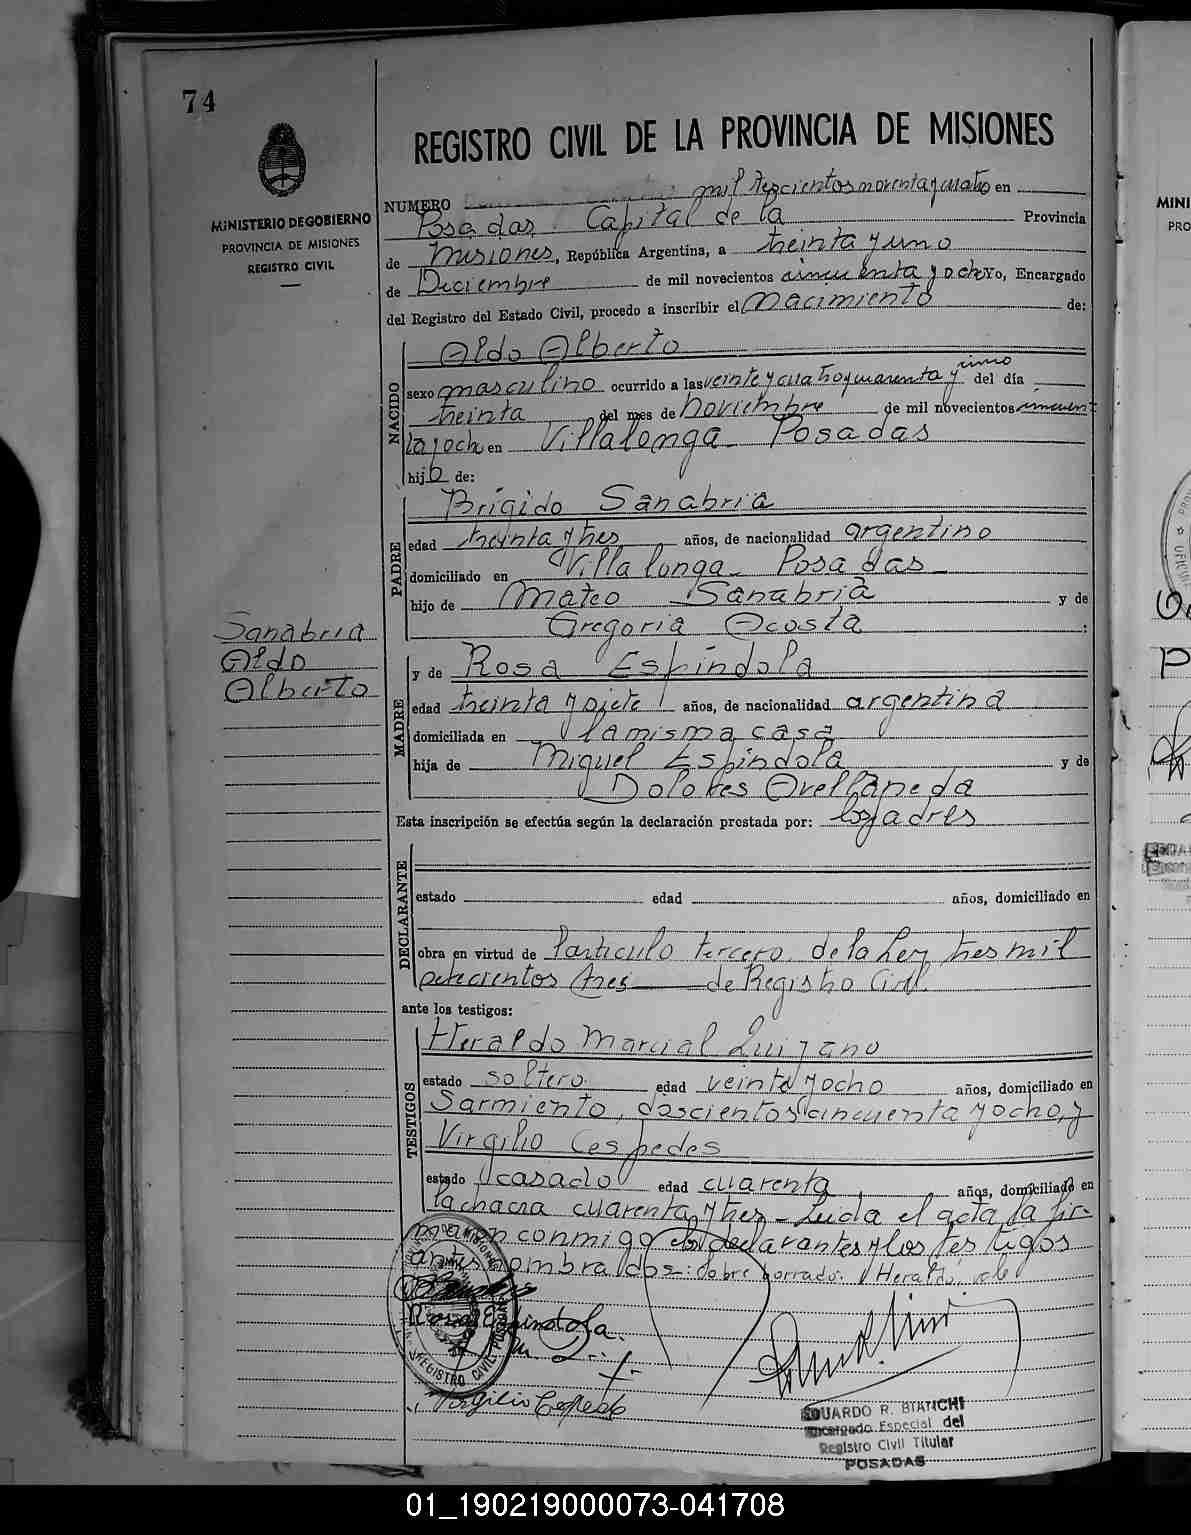 74
REGISTRO CIVIL DE LA PROVINCIA DE MISIONES
MINISTERIO DE GOBIERNO
PROVINCIA DE MISIONES
REGISTRO CIVIL
NUMERO mil trescientos noventa y cuatro en
Posadas Capital de la Provincia
de Misiones, República Argentina, a treinta y uno
de Diciembre de mil novecientos cincuenta y ocho Yo, Encargado
del Registro del Estado Civil, procedo a inscribir el Nacimiento de:
NACIDO
Aldo Alberto
sexo masculino ocurrido a las veinte y cuatro y cuarenta y cinco del día
treinta del mes de Noviembre de mil novecientos cincuen
ta y och en Villalonga Posadas
hijo de:
PADRE
Brígido Sanabria
edad treinta y tres años, de nacionalidad argentino
domiciliado en Villa longa Posadas
hijo de Mateo Sanabria y de
Gregoria Acosta
Sanabria
Aldo
Alberto
MADRE
y de Rosa Espíndola
edad treinta y siete años, de nacionalidad argentina
domiciliada en la misma casa
hija de Miguel Espíndola y de
Dolores Avellaneda
Esta inscripción se efectúa según la declaración prestada por: los padres
DECLARANTE
estado edad años, domiciliado en
obra en virtud de l'artículo tercero de la Ley tres mil
setecientos tres de Registro Civil
ante los testigos:
TESTIGOS
Heraldo Marcial Quijano
estado soltero edad veinte y ocho años, domiciliado en
Sarmiento, doscientos cincuenta y ocho, y
Virgilio Cespedes
estado casado edad cuarenta años, domiciliado en
la chacra cuarenta y tres - Leída el acta la fir-
man conmigo los declarantes y los testigos
antes nombrados: sobre borrado: Heraldo, vale
Rosa Espindola
Virgilio Cespedes
REGISTRO CIVIL POSADAS
EDUARDO R. BIANCHI
Encargado Especial del
Registro Civil Titular
POSADAS
01_190219000073-041708